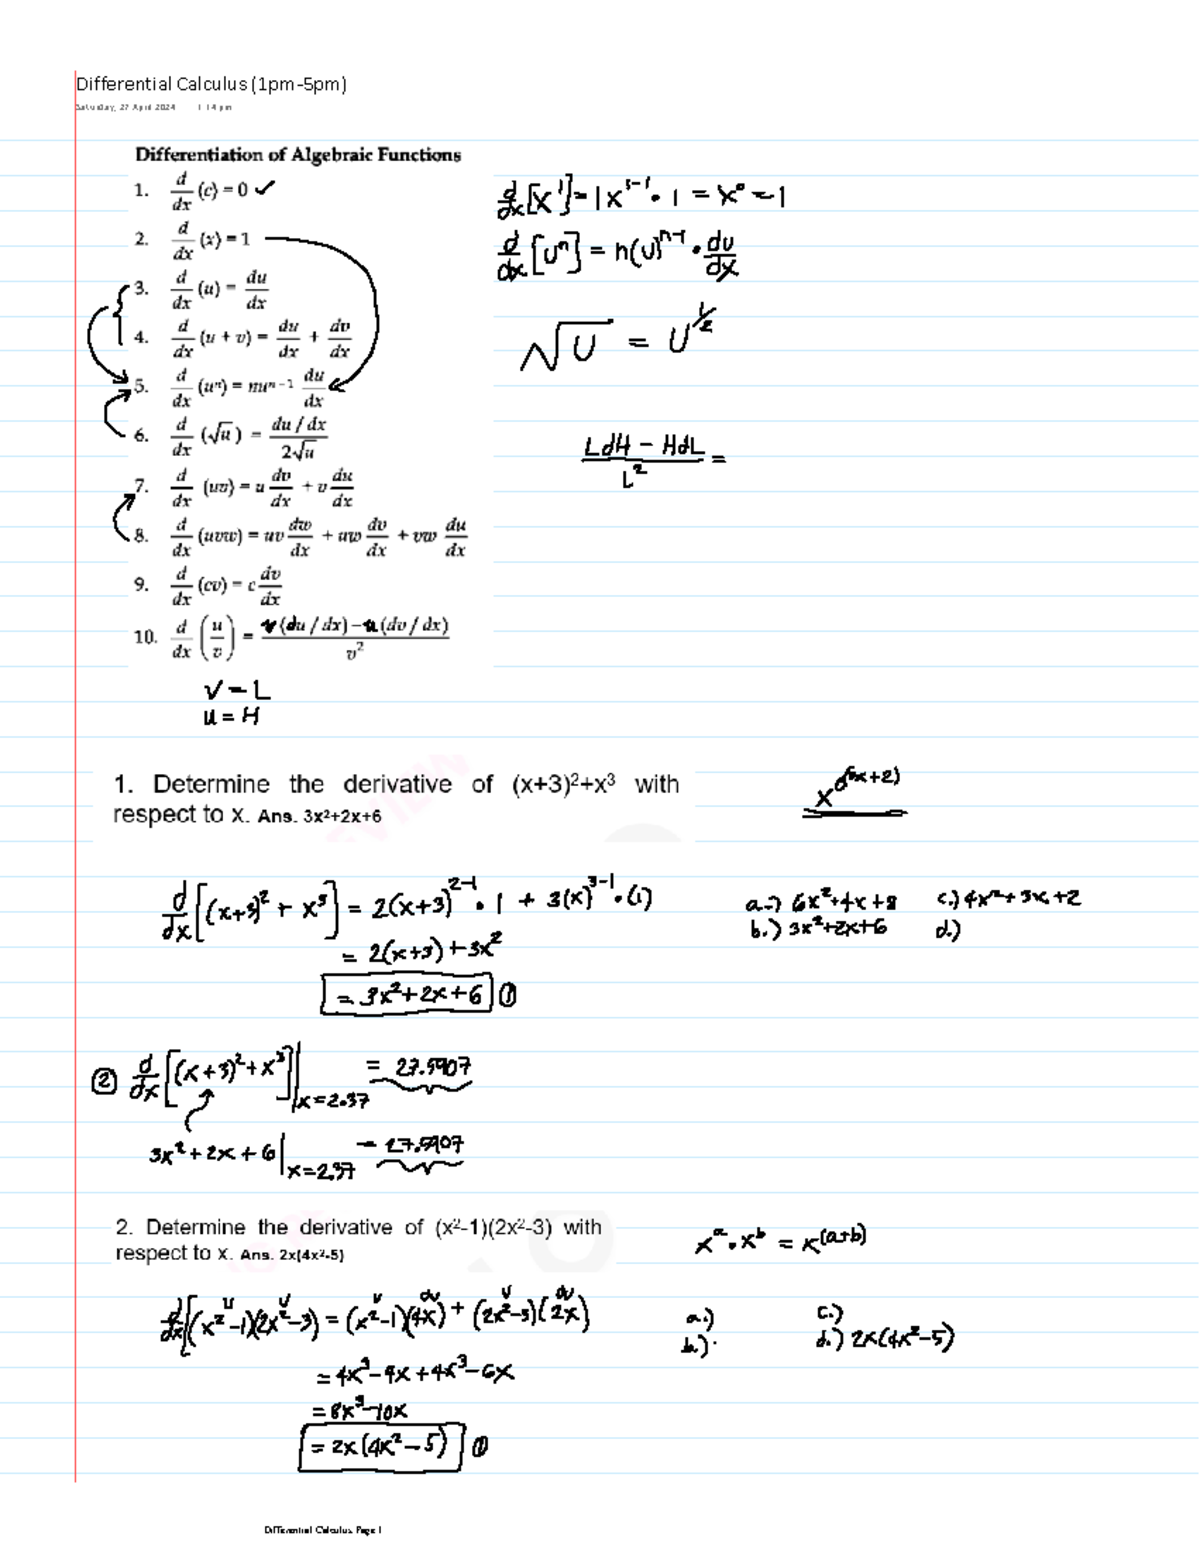 Differential Calculus (1pm-5pm)
Saturday, 27 April 2024 1:14 pm
Differentiation of Algebraic Functions
1. d/dx (c) = 0 ✓
2. d/dx (x) = 1
3. d/dx (u) = du/dx
4. d/dx (u + v) = du/dx + dv/dx
5. d/dx (uⁿ) = nuⁿ⁻¹ du/dx
6. d/dx (√u) = du/dx / 2√u
7. d/dx (uv) = u dv/dx + v du/dx
8. d/dx (uvw) = uv dw/dx + uw dv/dx + vw du/dx
9. d/dx (cv) = c dv/dx
10. d/dx (u/v) = v(du/dx) – u(dv/dx) / v²
v = L
u = H
d/dx [x¹] = 1x¹⁻¹ · 1 = x⁰ = 1
d/dx [uⁿ] = n(u)ⁿ⁻¹ · du/dx
√u = u^(1/2)
LdH – HdL / L² =
1. Determine the derivative of (x+3)²+x³ with
respect to x. Ans. 3x²+2x+6
d/dx [(x+3)² + x³] = 2(x+3)²⁻¹ · 1 + 3(x)³⁻¹ · (1)
= 2(x+3) + 3x²
= 3x²+2x+6 ①
a.) 6x²+4x+8 c.) 4x²+3x+2
b.) 3x²+2x+6 d.)
② d/dx [(x+3)²+x³] | x=2.37 = 27.5907
3x²+2x+6 | x=2.37 = 27.5907
2. Determine the derivative of (x²-1)(2x²-3) with
respect to x. Ans. 2x(4x²-5)
xᵃ · xᵇ = x^(a+b)
d/dx [(x²-1)(2x²-3) = (x²-1)(4x) + (2x²-3)(2x)
= 4x³-4x+4x³-6x
= 8x³-10x
= 2x(4x²-5) ①
a.) c.)
b.) d.) 2x(4x²-5)
Differential Calculus Page 1